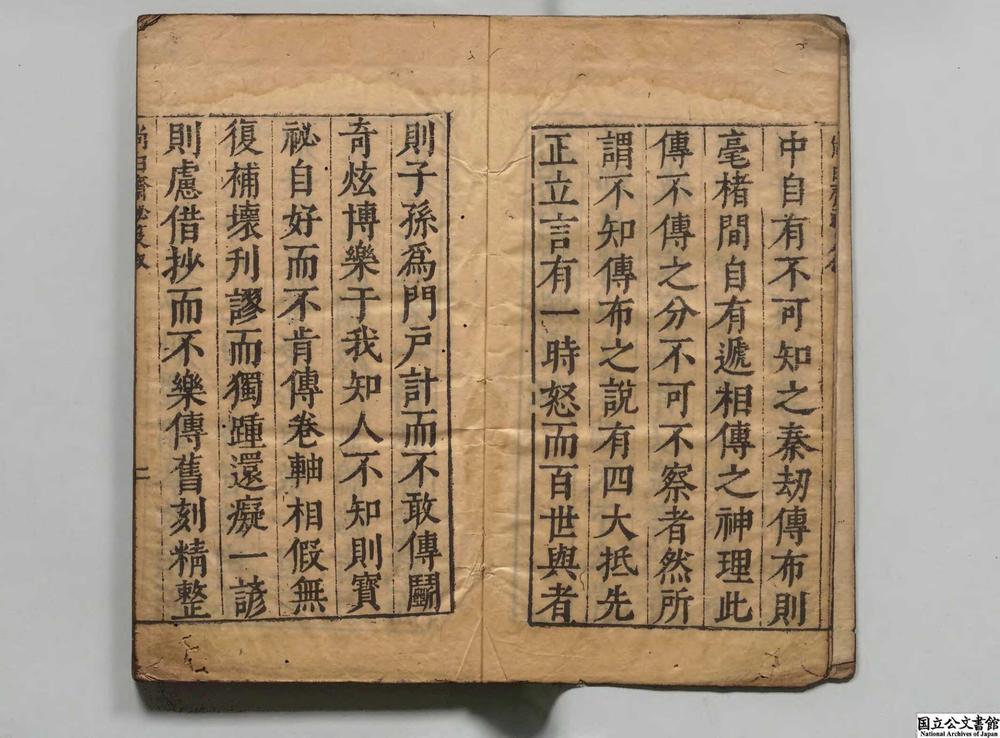 中自有不可知之秦劫傳布則
毫楮間自有遞相傳之神理此
傳不傳之分不可不察者然所
謂不知傳布之說有四大抵先
正立言有一時怒而百世與者
則子孫爲門戸計而不敢傳鬭
奇炫博樂于我知人不知則寶
祕自好而不肯傳卷軸相假無
復補壞刋謬而獨踵還癡一諺
則慮借抄而不樂傳舊刻精整
尚白齋祕笈敘
二
国立公文書館
National Archives of Japan